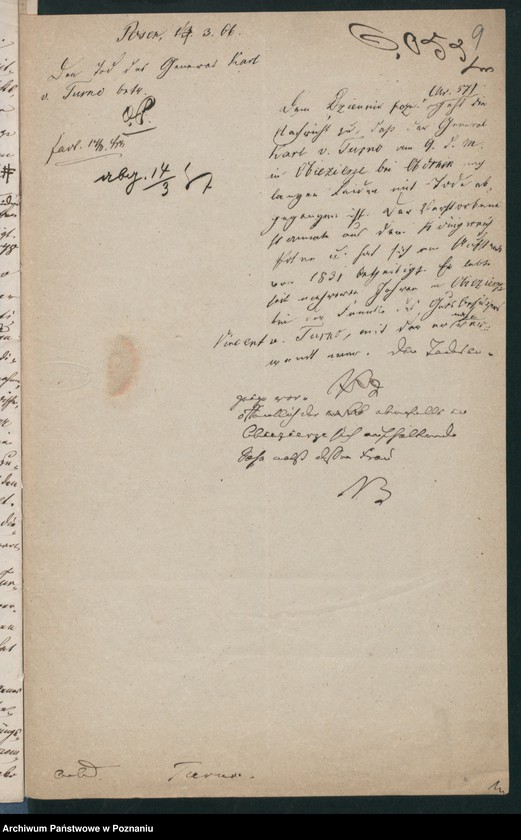 Posen, 14. 3. 66.
9
Den Tod des General Karl
v. Turno betr.
abg. 14/3
(Nr. 57)
Dem Dziennik pozn. geht die
Nachricht zu, daß der General
Karl v. Turno am 9. d. M.
in Obiezierze bei Obornik nach
langen Leiden mit Tode ab-
gegangen ist. Der Verstorbene
stammte aus dem Königreich
Polen u. hat sich am Aufstande
von 1831 betheiligt. Er lebte
seit mehreren Jahren in Obiezierze
bei der Familie des Gutsbesitzers
Vincent v. Turno, mit der er nahe
wandt war. Den Todesan-
Obiezierze sich aufhaltende
Sohn nebst dessen Frau
Turno.
Archiwum Państwowe w Poznaniu